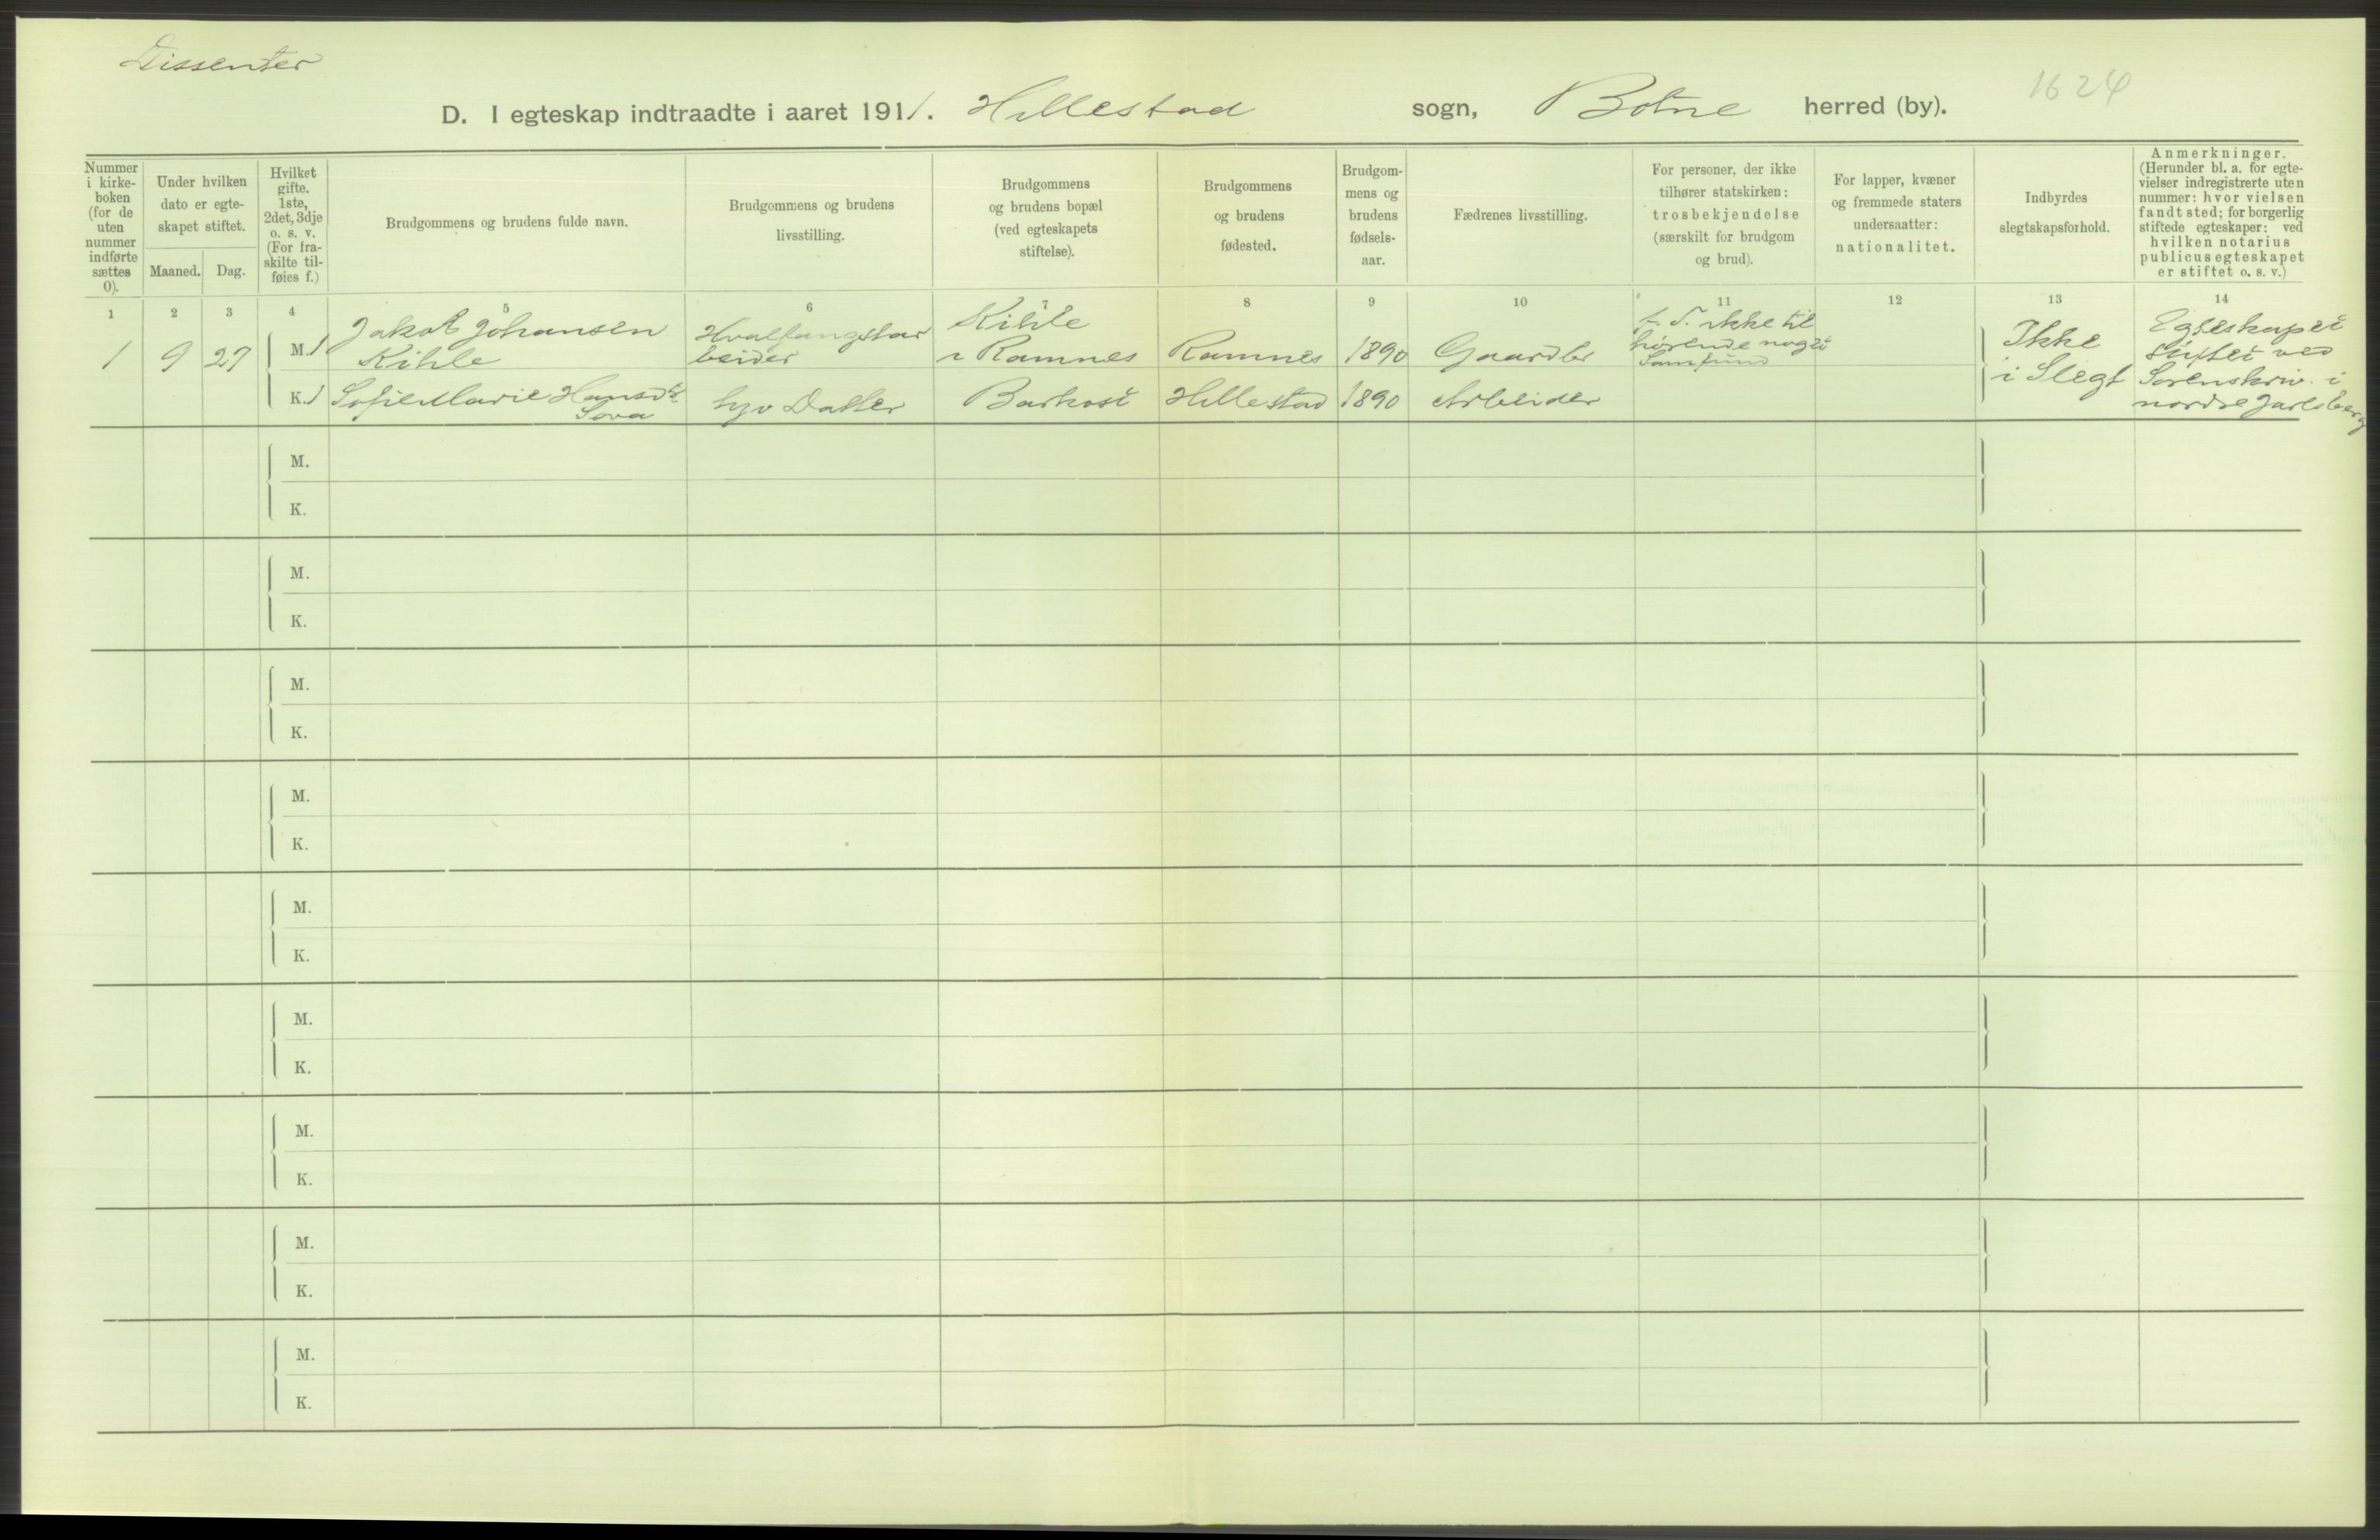 Dissenter
1624
D. I egteskap indtraadte i aaret 1911. Hillestad sogn, Botne herred (by).
Nummer
i kirke-
boken
(for de
uten
nummer
indførte
sættes
0).
Under hvilken
dato er egte-
skapet stiftet.
Maaned. Dag.
Hvilket
gifte.
1ste,
2det, 3dje
o. s. v.
(For fra-
skilte til-
føies f.)
Brudgommens og brudens fulde navn.
Brudgommens og brudens
livsstilling.
Brudgommens
og brudens bopæl
(ved egteskapets
stiftelse).
Brudgommens
og brudens
fødested.
Brudgom-
mens og
brudens
fødsels-
aar.
Fædrenes livsstilling.
For personer, der ikke
tilhører statskirken:
trosbekjendelse
(særskilt for brudgom
og brud).
For lapper, kvæner
og fremmede staters
undersaatter:
nationalitet.
Indbyrdes
slegtskapsforhold.
Anmerkninger.
(Herunder bl. a. for egte-
vielser indregistrerte uten
nummer: hvor vielsen
fandt sted; for borgerlig
stiftede egteskaper: ved
hvilken notarius
publicus egteskapet
er stiftet o. s. v.)
1 2 3 4 5 6 7 8 9 10 11 12 13 14
1 9 27
M. 1
Jakob Johansen
Kihle
Hvalfangstar
beider
Kihle
i Ramnes
Ramnes
1890
Gaardbr
ikke til
hørende noget
Samfund
Ikke
i Slegt
Egteskapet
stiftet ved
Sorenskriv. i
nordre Jarlsberg
K. 1
Sofie Marie Hansdt
Sova
hjv Datter
Barkost
Hillestad
1890
Arbeider
M.
K.
M.
K.
M.
K.
M.
K.
M.
K.
M.
K.
M.
K.
M.
K.
M.
K.